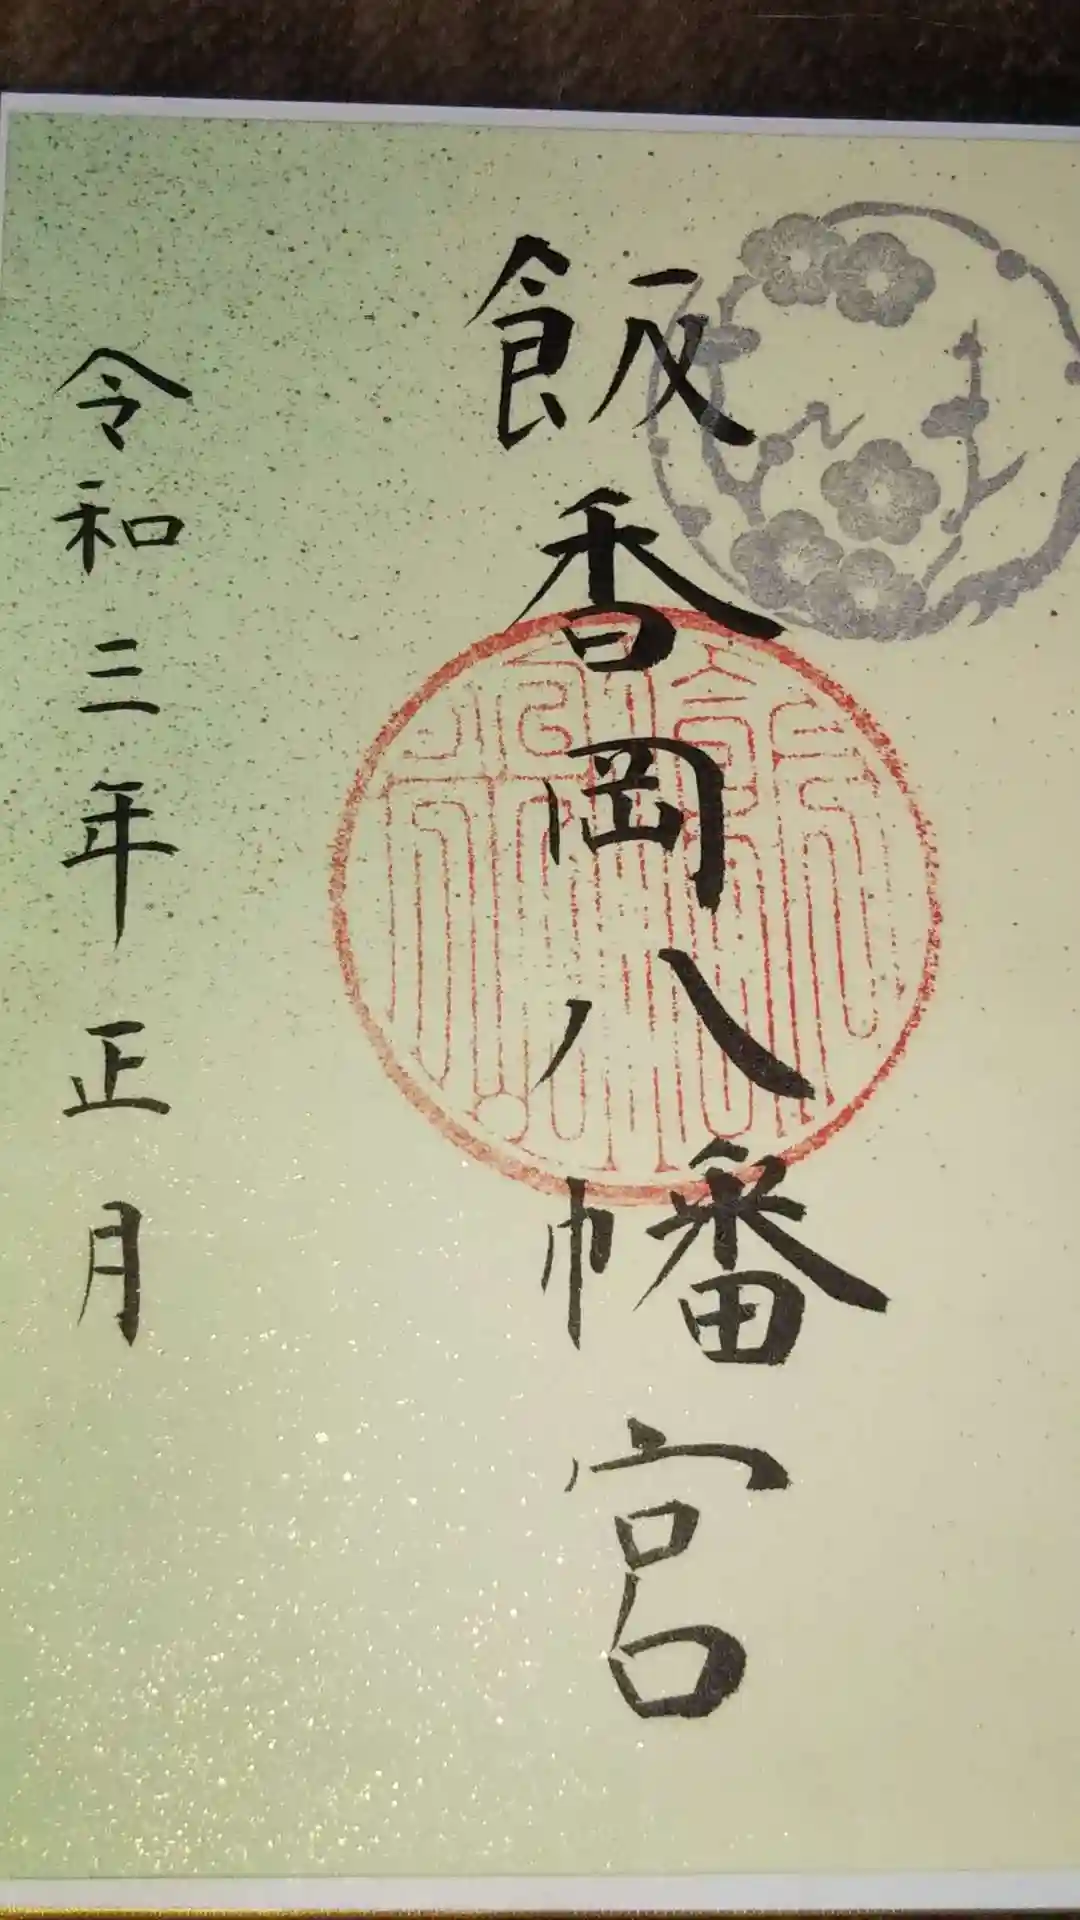 飯香岡八幡宮
令和三年正月